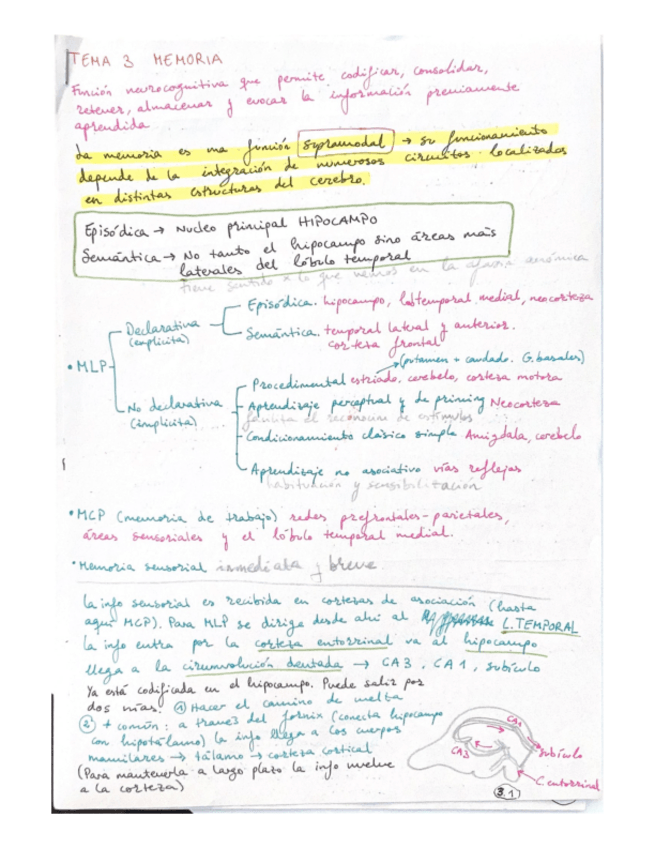 TEMA 3 MEMORIA
Función neurocognitiva que permite codificar, consolidar,
retener, almacenar y evocar la información previamente
aprendida
La memoria es una función supramodal → su funcionamiento
depende de la integración de numerosos circuitos localizados
en distintas estructuras del cerebro.
Episódica → Nucleo principal HIPOCAMPO
Semántica → No tanto el hipocampo sino áreas más
laterales del lóbulo temporal
tiene sentido x lo que vemos en la afasia anómica
• MLP
Declarativa
(explícita)
Episódica. hipocampo, lobtemporal medial, neocorteza
Semántica. temporal lateral y anterior.
corteza frontal
(putamen + caudado. G. basales)
No declarativa
(implícita)
Procedimental estriado, cerebelo, corteza motora
Aprendizaje perceptual y de priming Neocorteza
facilita el reconocim de estímulos
Condicionamiento clásico simple Amígdala, cerebelo
Aprendizaje no asociativo vías reflejas
habituación y sensibilización
• MCP (memoria de trabajo) redes prefrontales-parietales,
áreas sensoriales y el lóbulo temporal medial.
• Memoria sensorial inmediata y breve
La info sensorial es recibida en cortezas de asociación (hasta
aquí MCP). Para MLP se dirige desde ahí al L. TEMPORAL
La info entra por la corteza entorrinal va al hipocampo
llega a la circunvolución dentada → CA3, CA1, subículo
Ya está codificada en el hipocampo. Puede salir por
dos vías: ① Hacer el camino de vuelta
② + común: a través del fornix (conecta hipocampo
con hipotálamo) la info llega a los cuerpos
mamilares → tálamo → corteza cortical
(Para mantenerla a largo plazo la info vuelve
a la corteza)
CA1
CA3
Subículo
C entorrinal
3.1